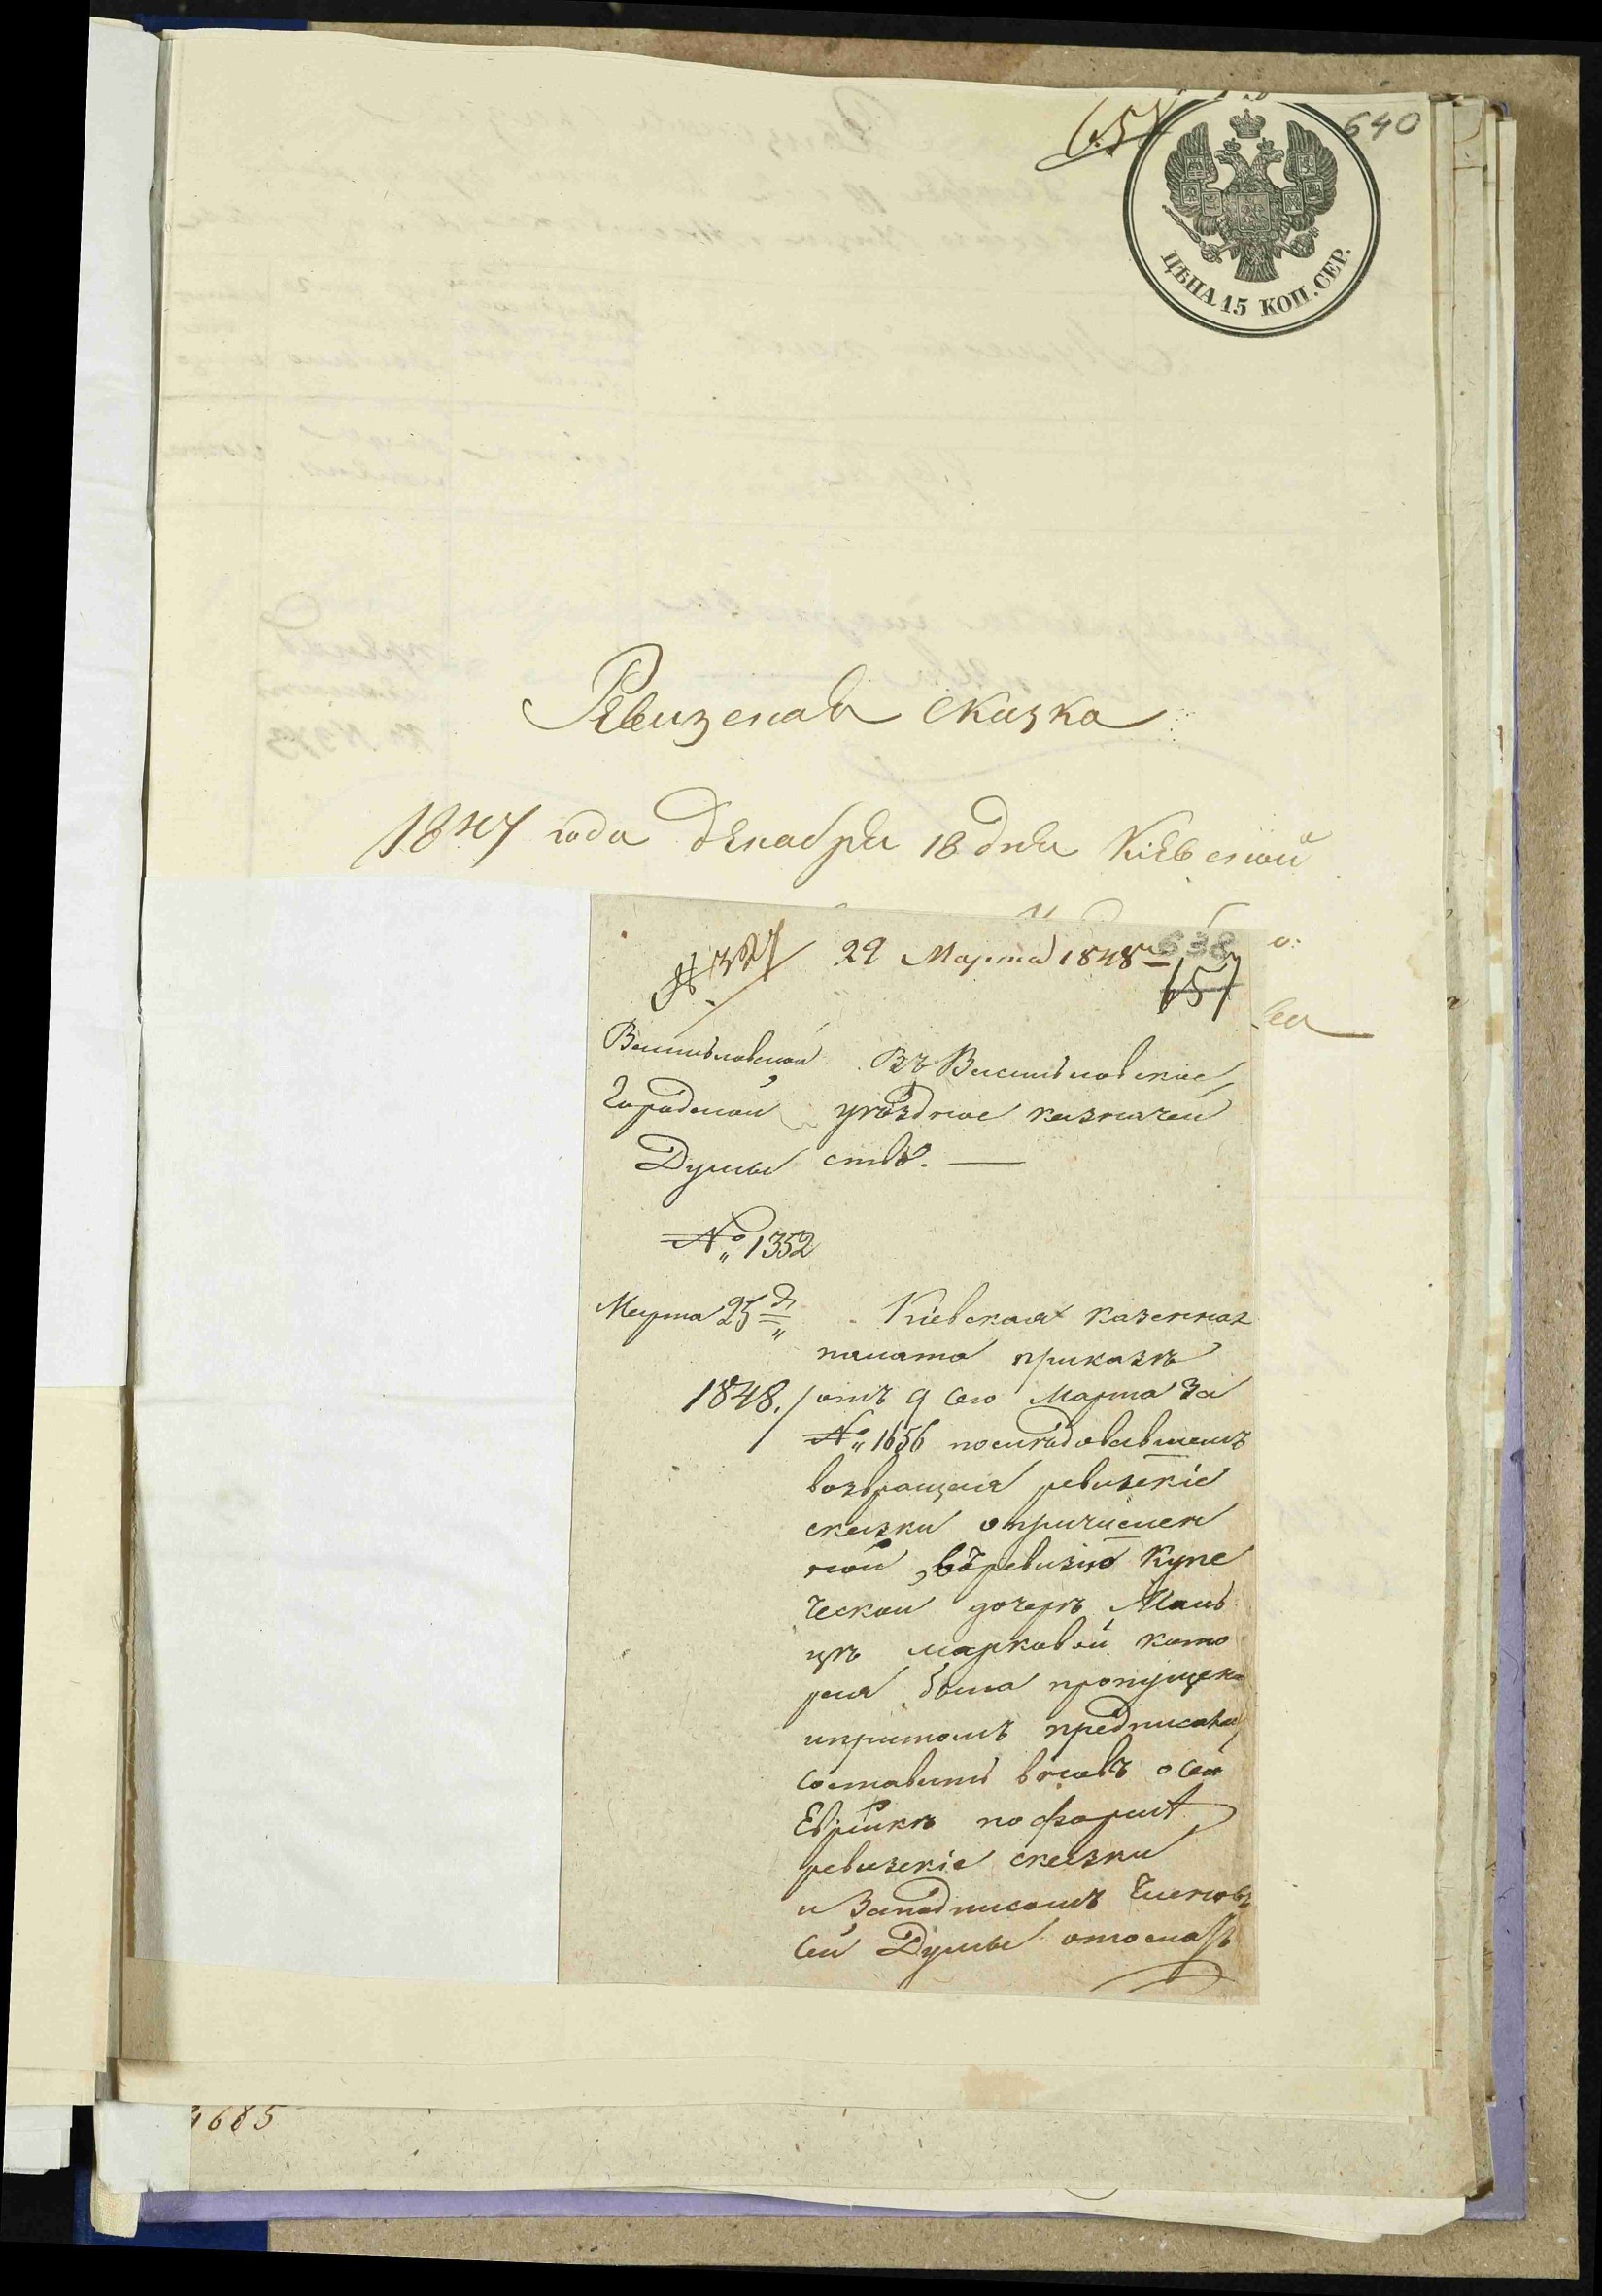 640
ЦѢНА 15 КОП. СЕР.
Ревизская сказка
1847 года декабря 18 дня Кіевской
638
№ 1327 29 Марта 1848 г.
657
Васильковской Въ Васильковское
Городской уѣздное казначей
Думы ство.
№ 1352
Марта 25 д. Кіевская казенная
палата приказѣ
1848. отъ 9 сего Марта За
№ 1656 послѣдовавшемъ
возвращая ревизскіе
сказки опричислен
ной въ ревизію Купе
ческой дочерѣ
марковой кото
рая была пропущена
ипритомъ предписала
составить вновь о сей
Еврѣйкѣ поформѣ
ревизскіе сказки
и Заподписомъ Членовъ
сей Думы отослать
1685